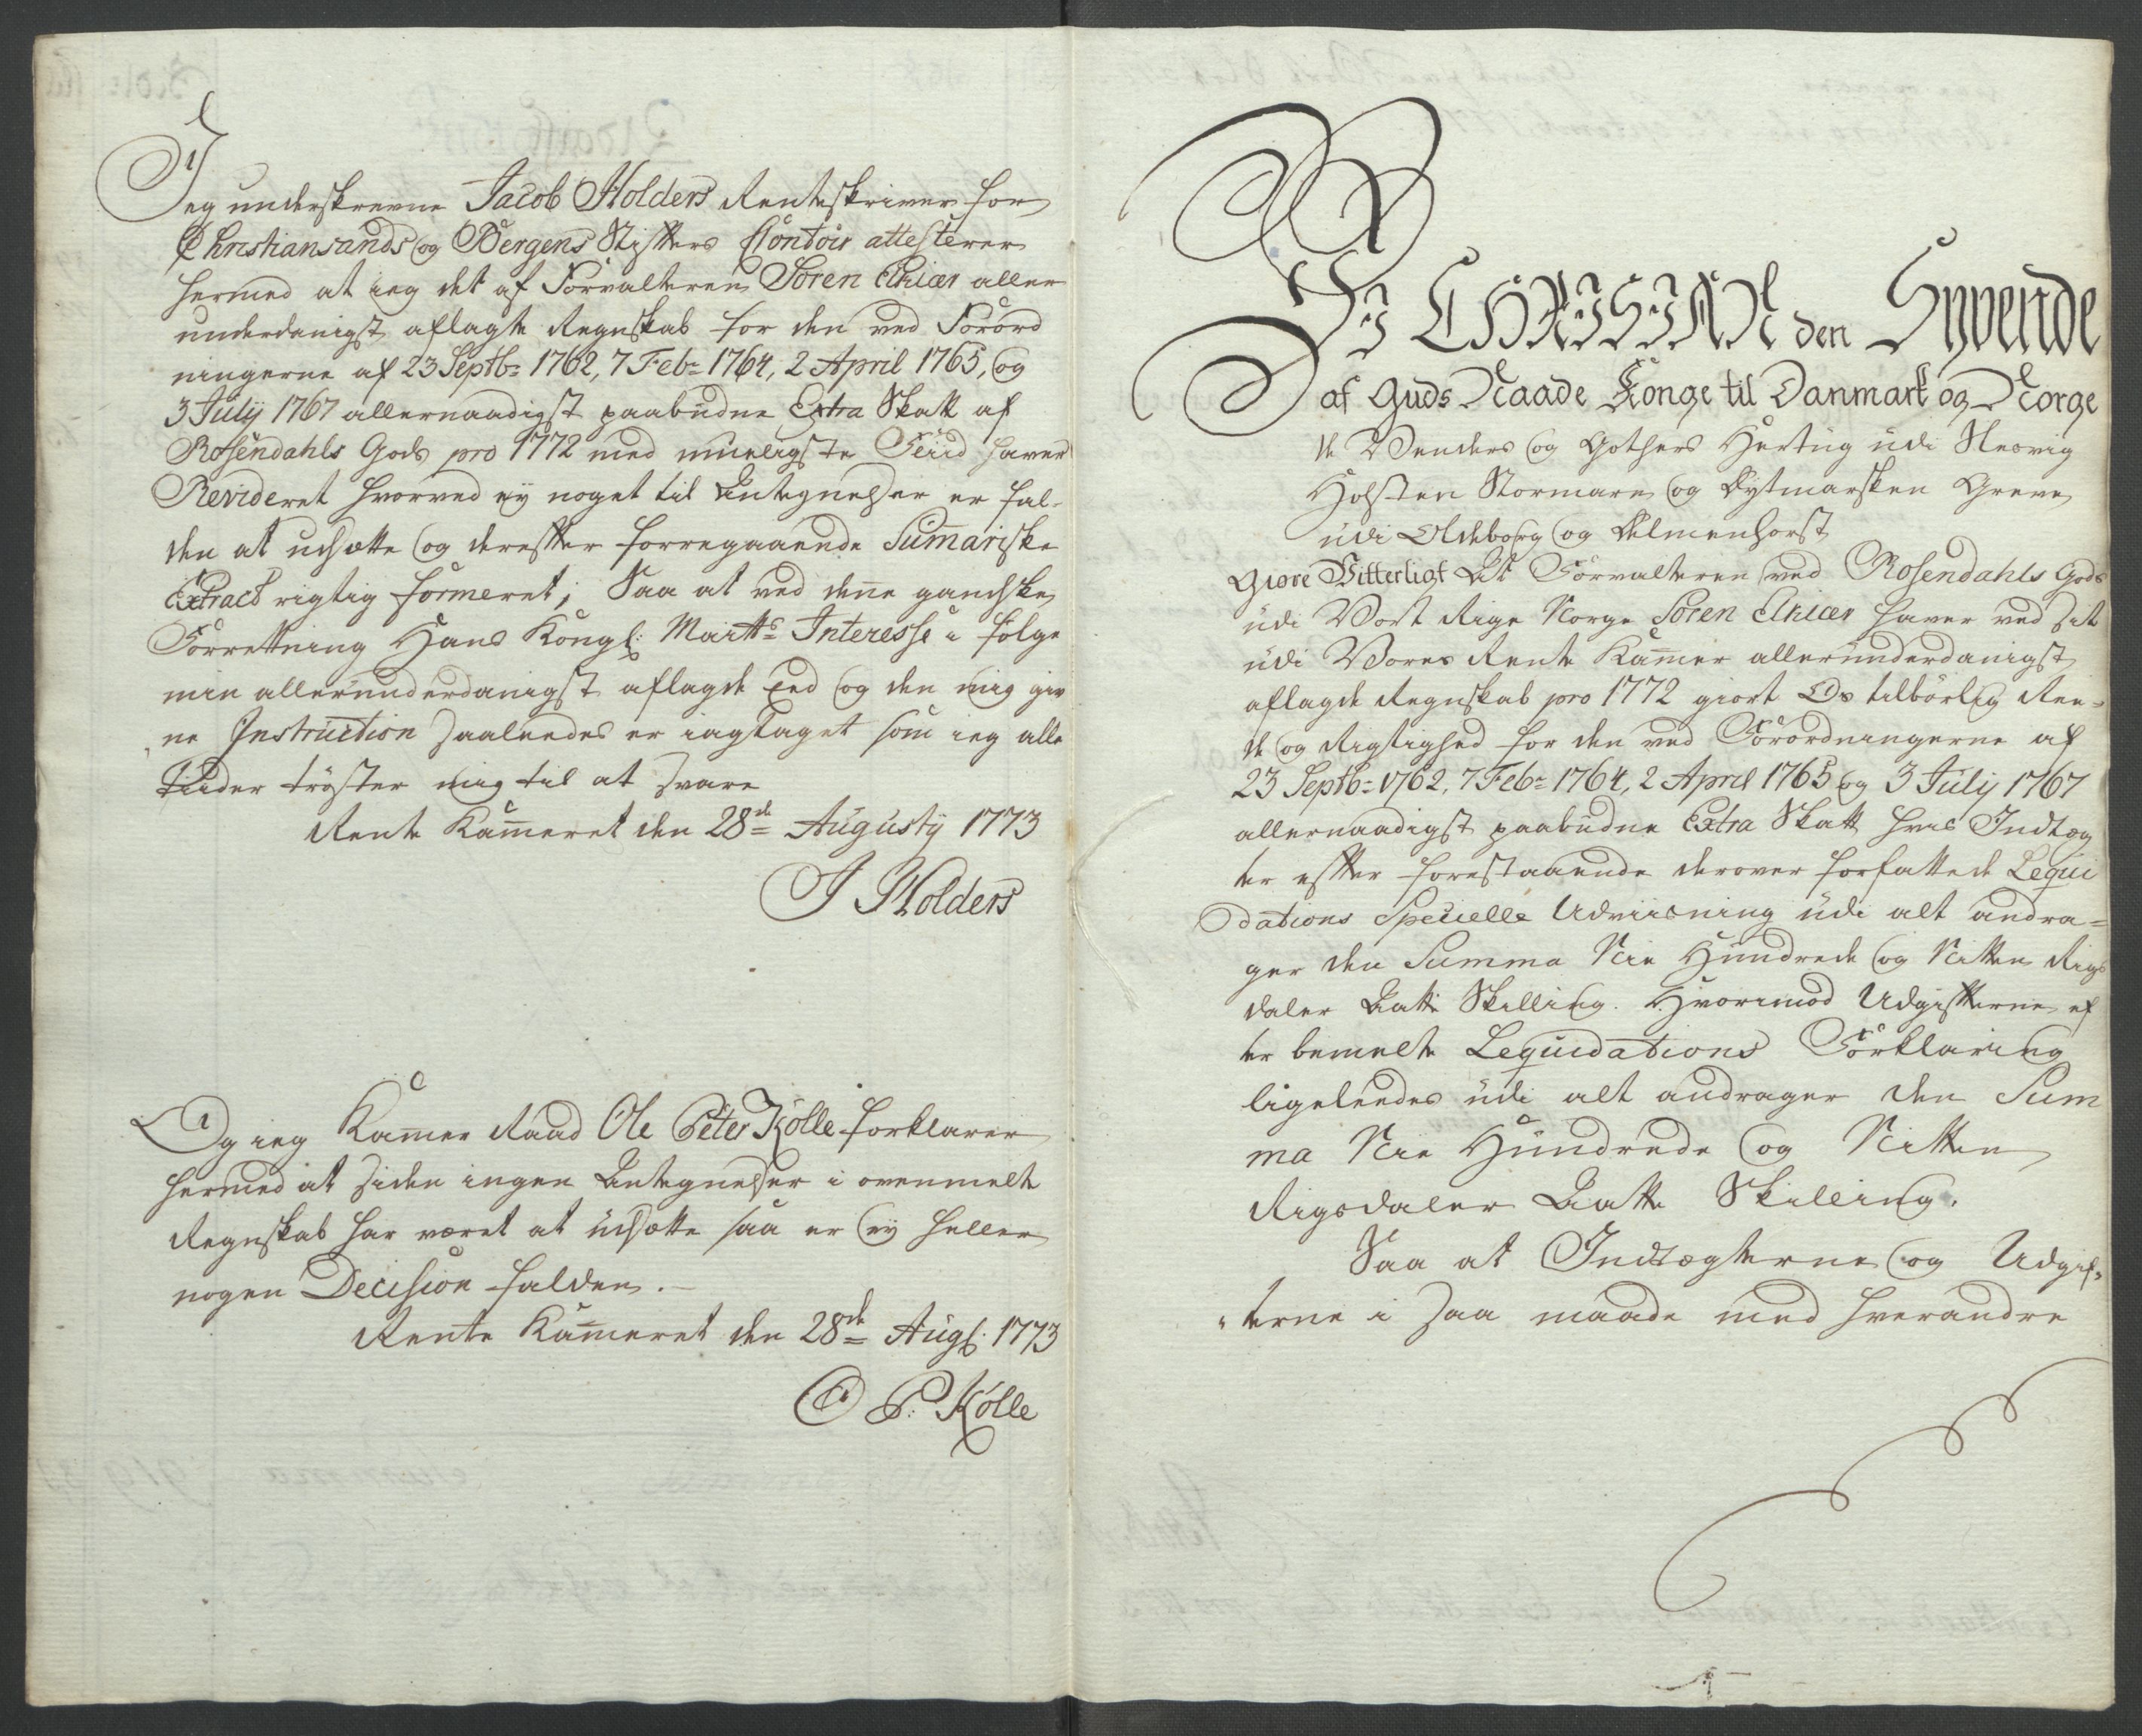 Jeg underskrevne Jacob Holders Renteskriver for
Christiansands og Bergens Stifters Contoir attesterer
hermed at ieg det af Forvalteren Søren Elkiær aller
underdanigst aflagte Regnskab for den ved Forord
ningerne af 23 Septbr 1762, 7 Febr 1764, 2 April 1765, og
3 Julij 1767 allernaadigst paabudne Extra Skatt af
Rosendahls Gods pro 1772 med mueligste Fliid haver
Revideret hvorved ey noget til Antegnelser er fal-
den at udsætte og derefter forregaaende Sum̄ariske
Extract rigtig formeret; Saa at ved den̄e gandske
Forrettning Hans Kongl: Maitts Interesse i følge
min allerunderdanigst aflagde Eed og den mig giv
ne Instruction saaleedes er iagtaget som ieg alle
tiider trøster mig til at svare
Rente Kam̄eret den 28de Augustij 1773
J Holders
Og ieg Kam̄er Raad Ole Peter Kølle forklarer
hermed at siden ingen Antegnelser i ovenmelte
Regnskab har været at udsætte saa er ey heller
nogen Decision falden.
Rente Kam̄eret den 28de Augs: 1773
O P: Kølle
Wi CHRISTIAN den Syvende
af Guds Naade Konge til Danmark og Norge
de Wenders og Gothers Hertug udi Slesvig
Holsten Stormarn og Dytmarsken Greve
udi Oldeborg og Delmenhorst
Giøre Vitterligt At Forvalteren ved Rosendahls Gods
udi Vort Rige Norge Søren Elkiær haver ved sit
udi Vores Rente Kam̄er allerunderdanigst
aflagde Regnskab pro 1772 giort Os tilbørlig Ree-
de og Rigtighed for den ved Forordningerne af
23 Septbr 1762, 7 Febr 1764, 2 April 1765 og 3 Julij 1767
allernaadigst paabudne Extra Skatt hvis Indtæg
ter efter forestaaende derover forfattede Lequi
dations Specielle Udviisning udi alt andra-
ger den Summa Nie Hundrede og Nitten Rigs
daler Aatte Skilling. Hvorimod Udgifterne ef
ter bemelte Lequidations Forklaring
ligeleedes udi alt andrager den Sum
ma Nie Hundrede og Nitten
Rigsdaler Aatte Skilling.
Saa at Indtægterne og Udgif-
terne i saa maade med hverandre